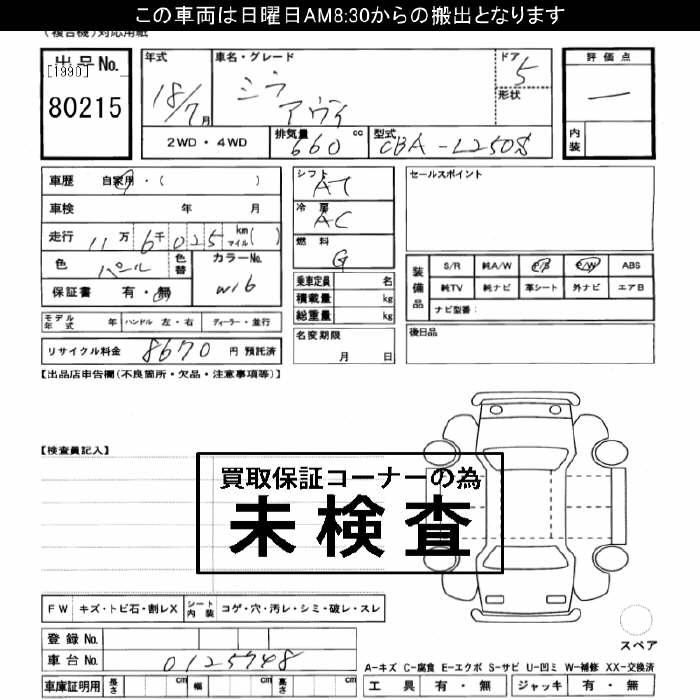 この車両は日曜日AM8:30からの搬出となります
(複合機)対応用紙
出品No.
[1990]
80215
年式
18/7月
車名・グレード
ミラ
アヴィ
ドア
5
形状
評価点
ー
内装
2WD・4WD
排気量 660 cc
型式 CBA-L250S
車歴 自家用・( )
車検 年 月
走行 11万6千025 km マイル( )
色 パール 色替
カラーNo. W16
保証書 有・無
モデル年式 年 ハンドル 左・右 ディーラー・並行
リサイクル料金 8670 円 預託済
シフト AT
冷房 AC
燃料 G
乗車定員 名
積載量 kg
総重量 kg
名変期限
月 日
セールスポイント
装備品
S/R 純A/W P/S P/W ABS
純TV 純ナビ 革シート 外ナビ エアB
ナビ型番:
後日品
【出品店申告欄(不良箇所・欠品・注意事項等)】
【検査員記入】
買取保証コーナーの為
未検査
FW キズ・トビ石・割レX シート内装 コゲ・穴・汚レ・シミ・破レ・スレ
登録No.
車台No. 0125748
車庫証明用 長さ cm 幅 cm 高さ cm
スペア
A-キズ C-腐食 E-エクボ S-サビ U-凹ミ W-補修 XX-交換済
工具 有・無 ジャッキ 有・無